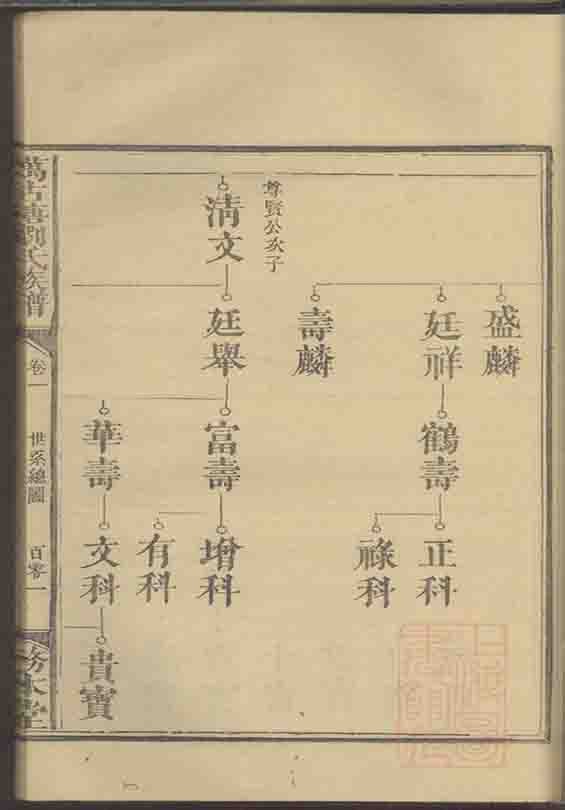 盛麟
廷祥
鶴壽
正科
祿科
壽麟
尊賢公次子
清文
廷舉
富壽
增科
有科
華壽
文科
貴寶
萬古塘劉氏族譜
卷一
世系總圖
百零一
務本堂